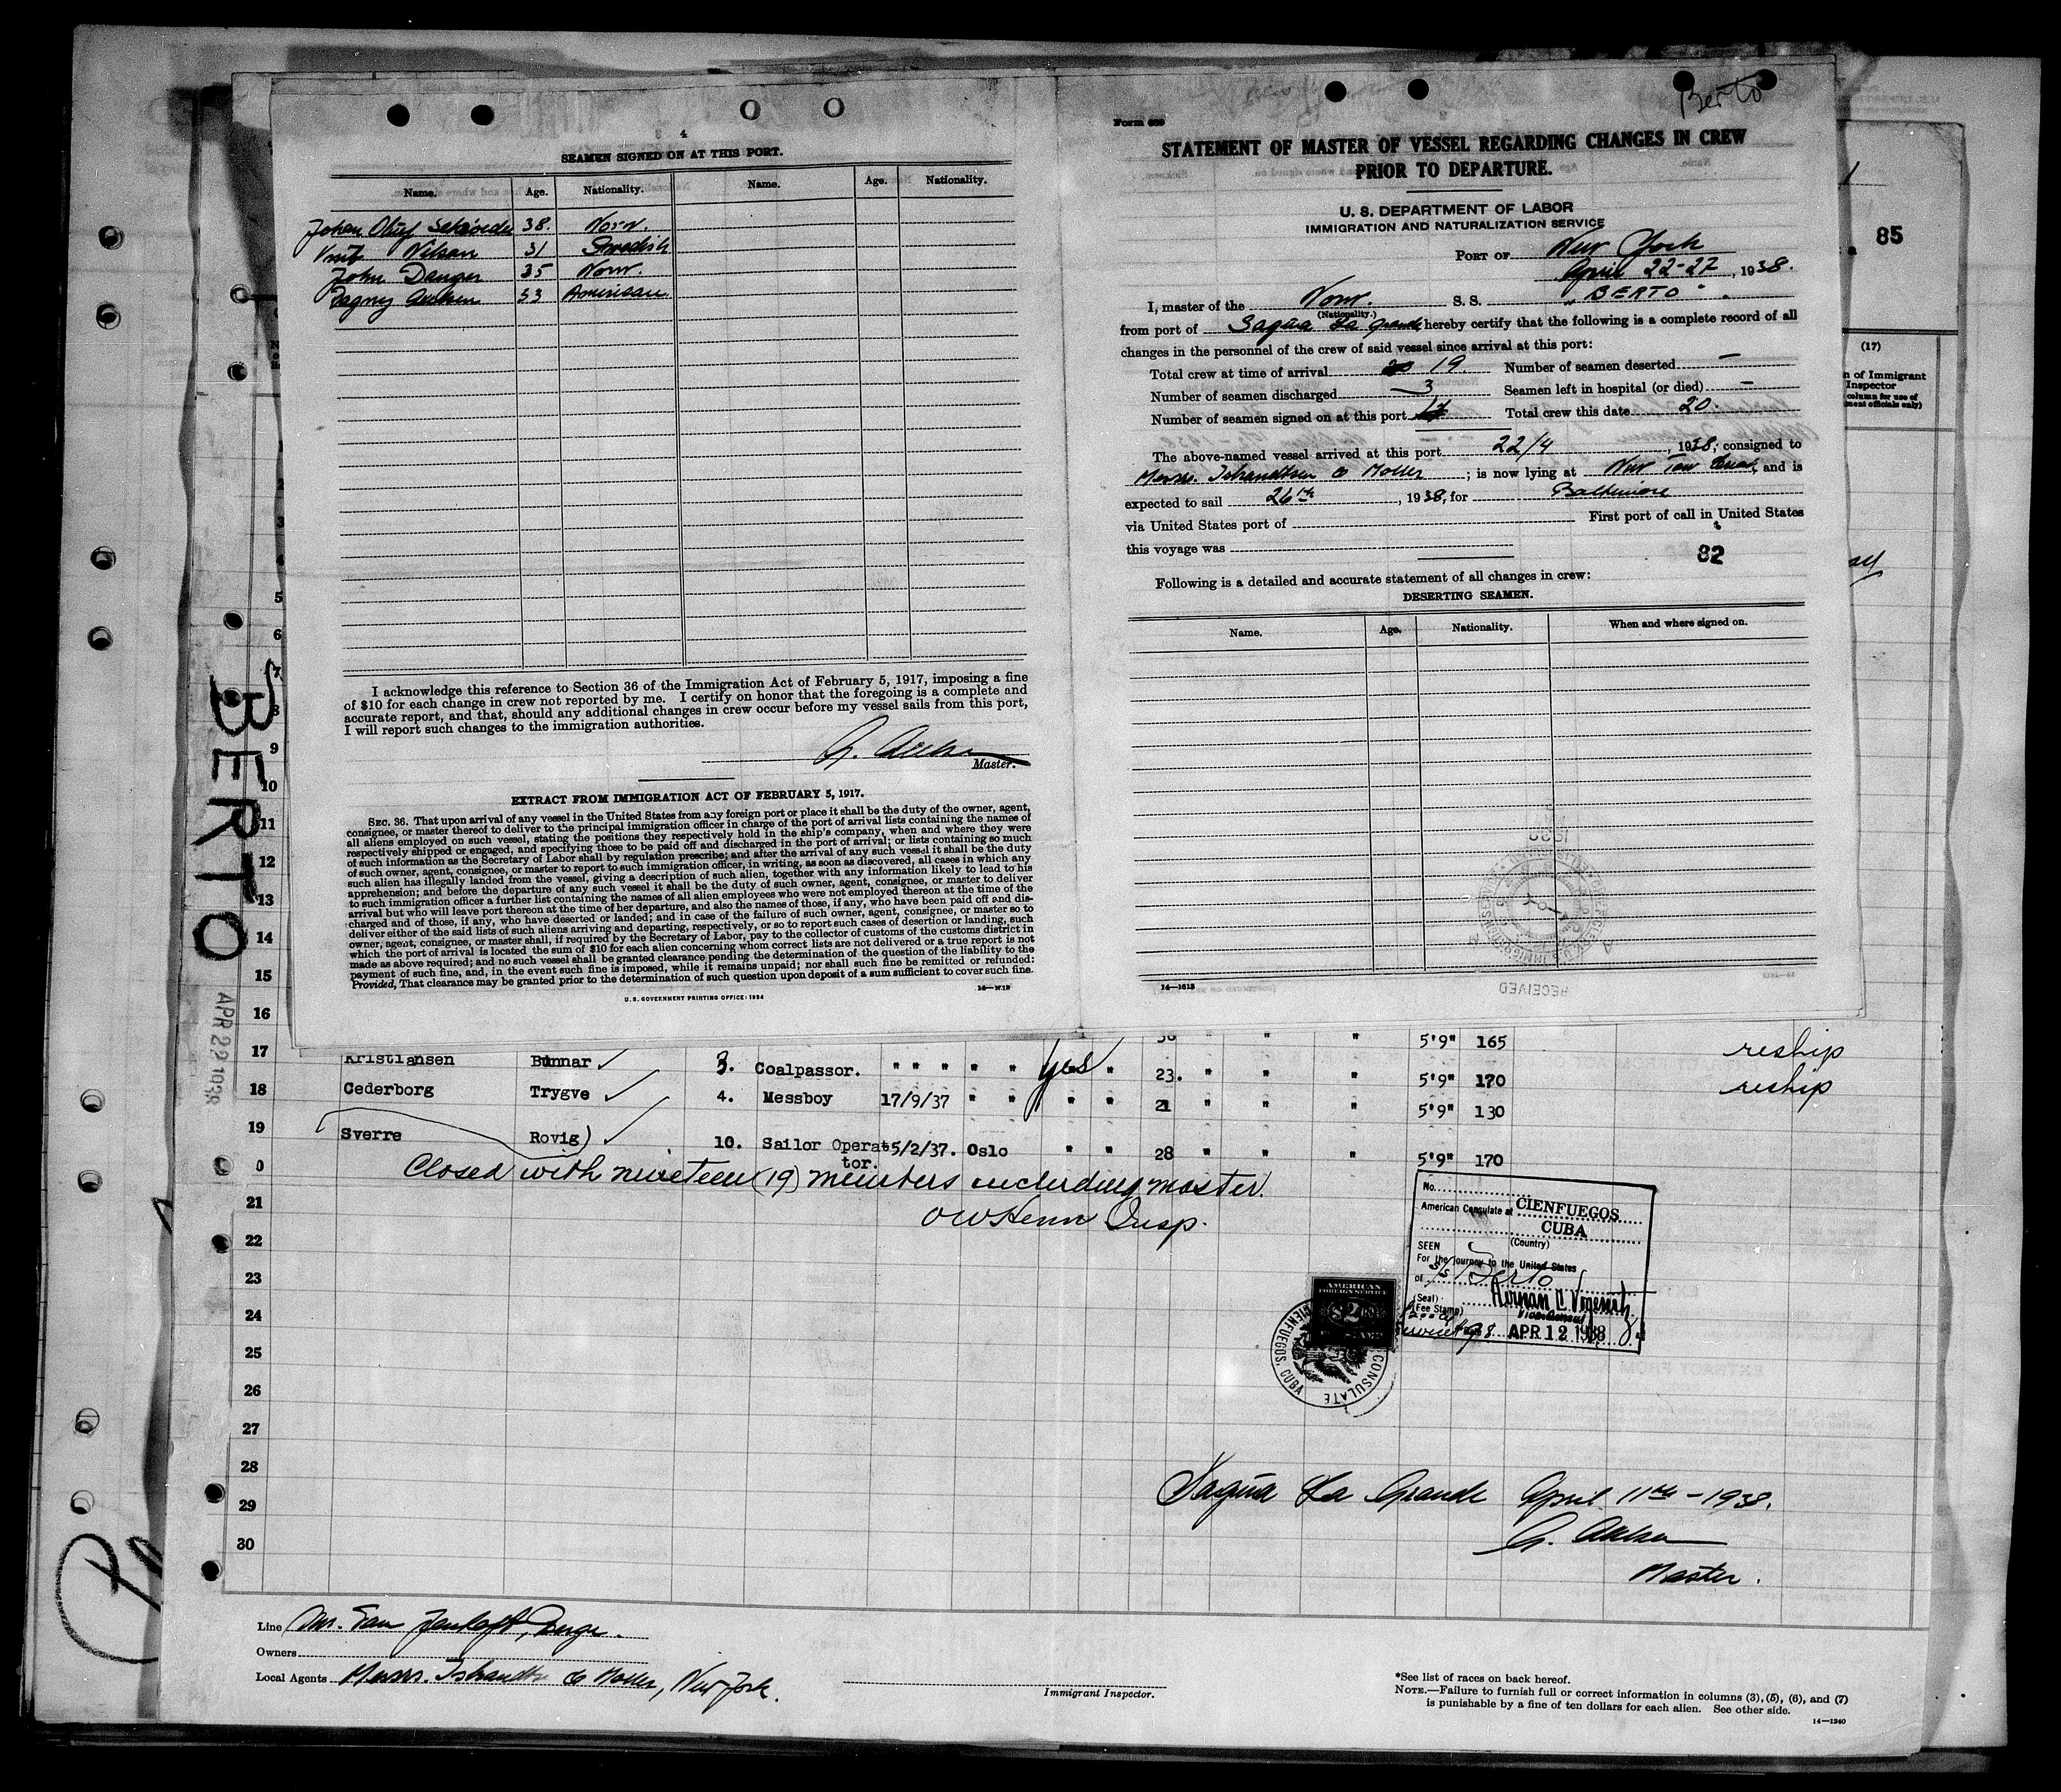 4
SEAMEN SIGNED ON AT THIS PORT.
Name. Age. Nationality. Name. Age. Nationality.
Johan Oluf 38. Norw.
Nilsen 31 Swedish
John Danger 35 Norw.
33 American
I acknowledge this reference to Section 36 of the Immigration Act of February 5, 1917, imposing a fine
of $10 for each change in crew not reported by me. I certify on honor that the foregoing is a complete and
accurate report, and that, should any additional changes in crew occur before my vessel sails from this port,
I will report such changes to the immigration authorities.
Master.
EXTRACT FROM IMMIGRATION ACT OF FEBRUARY 5, 1917.
SEC. 36. That upon arrival of any vessel in the United States from any foreign port or place it shall be the duty of the owner, agent,
consignee, or master thereof to deliver to the principal immigration officer in charge of the port of arrival lists containing the names of
all aliens employed on such vessel, stating the positions they respectively hold in the ship's company, when and where they were
respectively shipped or engaged, and specifying those to be paid off and discharged in the port of arrival; or lists containing so much
of such information as the Secretary of Labor shall by regulation prescribe; and after the arrival of any such vessel it shall be the duty
of such owner, agent, consignee, or master to report to such immigration officer, in writing, as soon as discovered, all cases in which any
such alien has illegally landed from the vessel, giving a description of such alien, together with any information likely to lead to his
apprehension; and before the departure of any such vessel it shall be the duty of such owner, agent, consignee, or master to deliver
to such immigration officer a further list containing the names of all alien employees who were not employed thereon at the time of the
arrival but who will leave port thereon at the time of her departure, and also the names of those, if any, who have been paid off and dis-
charged and of those, if any, who have deserted or landed; and in case of the failure of such owner, agent, consignee, or master so to
deliver either of the said lists of such aliens arriving and departing, respectively, or so to report such cases of desertion or landing, such
owner, agent, consignee, or master shall, if required by the Secretary of Labor, pay to the collector of customs of the customs district in
which the port of arrival is located the sum of $10 for each alien concerning whom correct lists are not delivered or a true report is not
made as above required; and no such vessel shall be granted clearance pending the determination of the question of the liability to the
payment of such fine, and, in the event such fine is imposed, while it remains unpaid; nor shall such fine be remitted or refunded:
Provided, That clearance may be granted prior to the determination of such question upon deposit of a sum sufficient to cover such fine.
U.S. GOVERNMENT PRINTING OFFICE: 1934
Berto
STATEMENT OF MASTER OF VESSEL REGARDING CHANGES IN CREW
PRIOR TO DEPARTURE.
U. S. DEPARTMENT OF LABOR
IMMIGRATION AND NATURALIZATION SERVICE
PORT OF New York
April 22-27, 1938.
I, master of the Norw. S. S. "BERTO"
(Nationality.)
from port of Sagua La Grande hereby certify that the following is a complete record of all
changes in the personnel of the crew of said vessel since arrival at this port:
Total crew at time of arrival 19 Number of seamen deserted —
Number of seamen discharged 3 Seamen left in hospital (or died) —
Number of seamen signed on at this port Total crew this date 20
The above-named vessel arrived at this port 22/4, 1938; consigned to
Messrs. & Moller; is now lying at New, and is
expected to sail 26th, 1938, for Baltimore
via United States port of First port of call in United States
this voyage was
82
Following is a detailed and accurate statement of all changes in crew:
DESERTING SEAMEN.
Name. Age. Nationality. When and where signed on.
14—1618
RECEIVED
85
(17)
n of Immigrant
Inspector
column for use of
ment officials only)
BERTO
APR 22 1938
5'9" 165
17 Kristiansen 3. Coalpassor. " " " " " yes " 23. " " " 5'9" 170 reship
18 Cederborg Trygve 4. Messboy 17/9/37 " " " " 21 " " " 5'9" 130 reship
19 Sverre Rovig) 10. Sailor Operat 5/2/37. Oslo " " 28 " " " 5'9" 170
tor.
Closed with nineteen (19) members including master.
Insp.
No.
American Consulate at CIENFUEGOS
CUBA
(Country)
SEEN
For the journey to the United States
of SS Berto
(Seal)
(Fee Stamp)
Vice Consul
APR 12 1938
AMERICAN
FOREIGN SERVICE
$2
CONSULATE
CIENFUEGOS, CUBA
5
6
7
8
9
10
11
12
13
14
15
16
21
22
23
24
25
26
27
28
29
30
Sagua La Grande April 11th - 1938.
Master.
Line
Owners
Local Agents Messrs. & Moller, New York.
Immigrant Inspector.
*See list of races on back hereof.
NOTE.—Failure to furnish full or correct information in columns (3), (5), (6), and (7)
is punishable by a fine of ten dollars for each alien. See other side.
14—1240